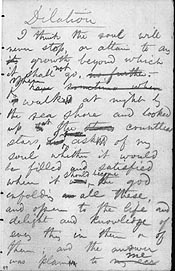 Dilation
I think the soul will
never stop, or attain to any
growth beyond which
it shall not go.
When I
walked at night by
the sea shore and looked
up at the countless
stars, I asked of my
soul whether it would
be filled and satisfied
when it should become the god
enfolding all these,
and open to the life and
delight and knowledge of
every thing in them or of
them; and the answer
was plain to me